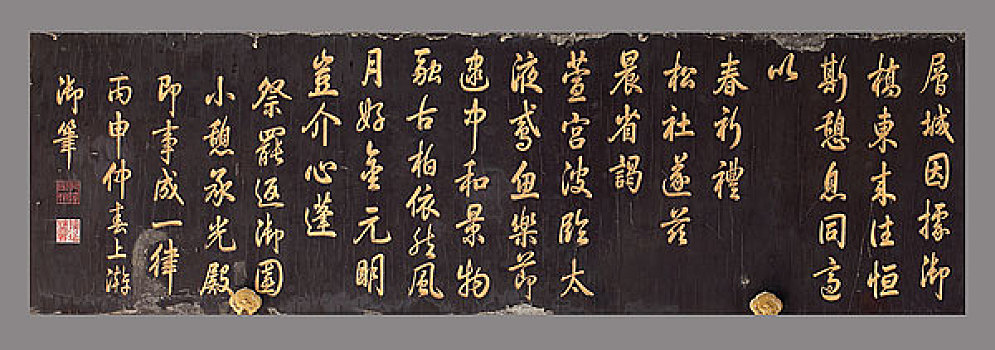 層城因據御
橋東來往恒
斯憩息同適
以
春祈禮
松社遂茲
晨省謁
萱宮波臨太
液鳶魚樂節
逮中和景物
融古柏依然風
月好金元明
豈介心蓬
祭罷返御園
小憩承光殿
即事成一律
丙申仲春上澣
御筆